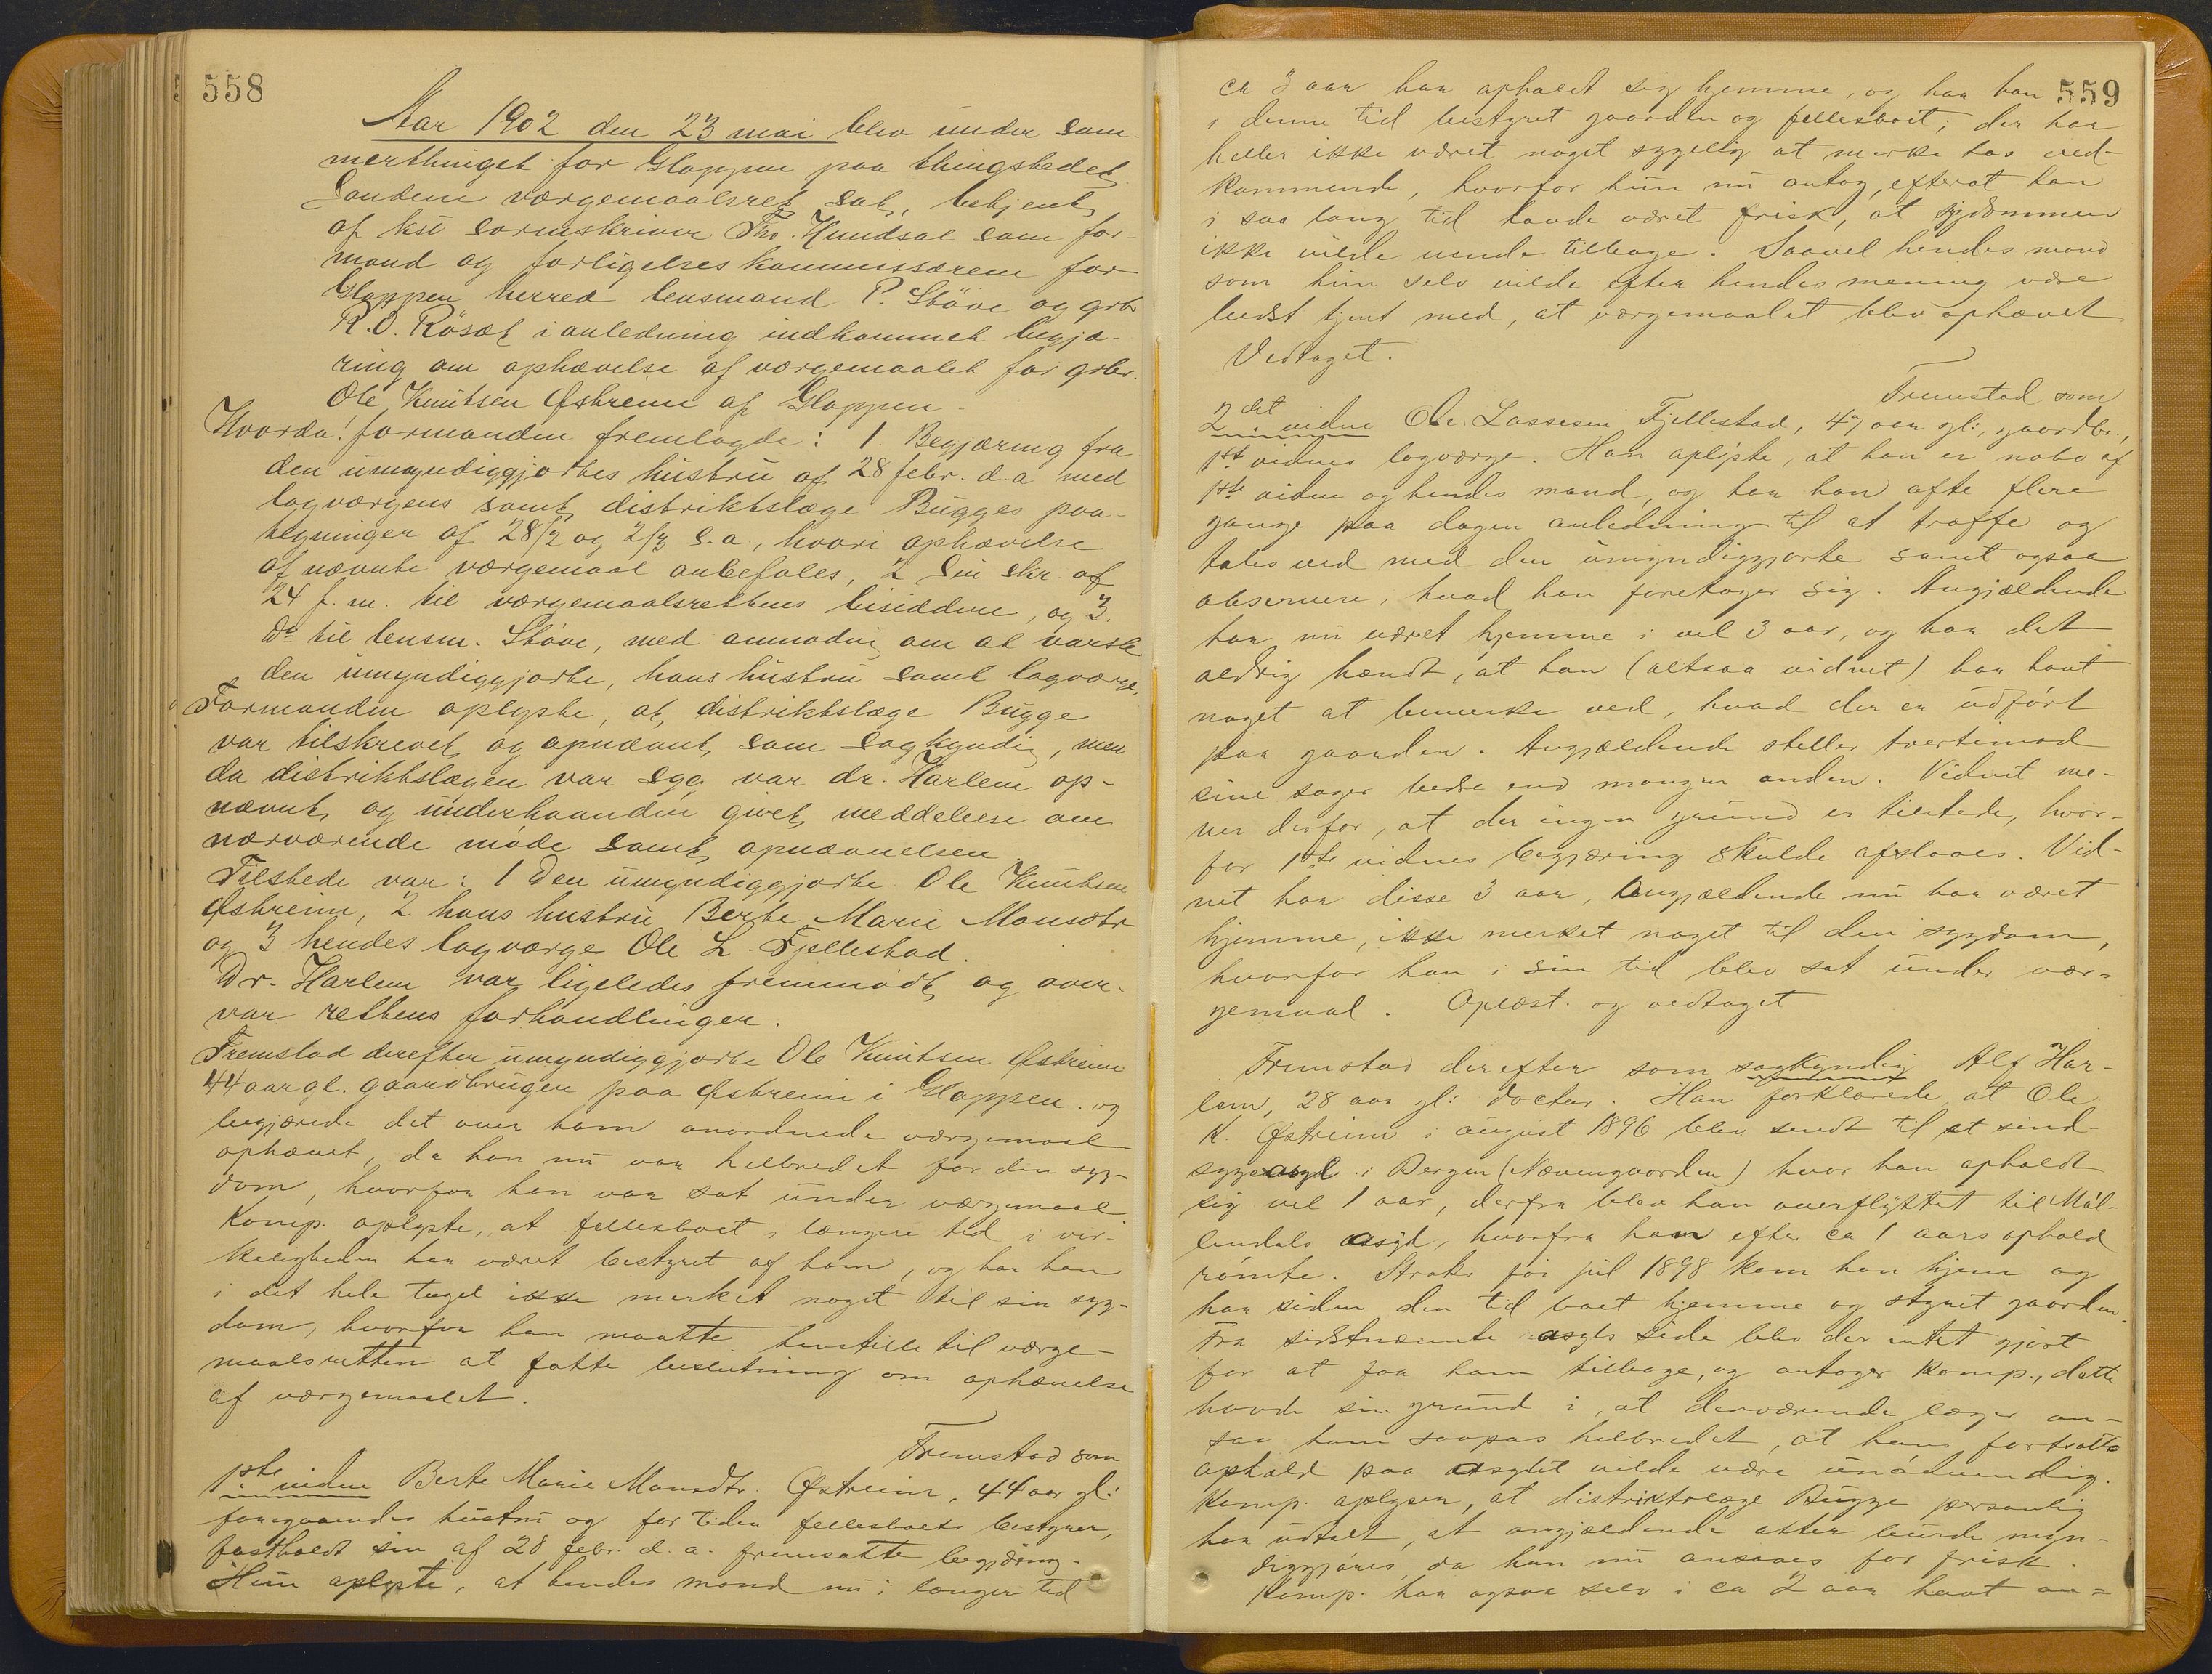 558
Aar 1902 den 23 mai blev under som-
merthinget for Gloppen paa thingstedet
Sandene værgemaalsret sat, betjent
af kst sorenskriver Tho. Hundsal som for-
mand og forligelseskommissærene for
Gloppen herred lensmand P. Støve og grbr
R. O. Røsæt i anledning indkommet begjæ-
ring om ophævelse af værgemaalet for grbr.
Ole Knutsen Østreim af Gloppen.
Hvorda! formanden fremlagde: 1. Begjæring fra
den umyndiggjortes hustru af 28 febr. d.a med
lagværgens samt distriktslæge Bugges paa-
tegninger af 28/2 og 2/3 s.a., hvori ophævelse
af nævnte værgemaal anbefales, 2 Sin skr. af
24 f.m. til værgemaalsrettens bisiddere, og 3.
Do til lensm. Støve, med anmodning om at varsle
den umyndiggjorte, hans hustru samt lagværge.
Formanden oplyste, at distriktslæge Bugge
var tilskrevet og opnævnt som sagkyndig, men
da distriktslægen var syg var dr. Harlem op-
nævnt og underhaanden givet meddelelse om
nærværende møde samt opnævnelsen.
Tilstede var: 1 Den umyndiggjorte Ole Knutsen
Østreim, 2 hans hustru Berte Marie Monsdtr
og 3 hendes lagværge Ole L. Fjellestad.
Dr. Harlem var ligeledes fremmødt og over-
var rettens forhandlinger.
Fremstod derefter umyndiggjorte Ole Knutsen Østreim
44 aar gl. gaardbruger paa Østreim i Gloppen. og
begjærede det over ham anordnede værgemaal
ophævet, da han nu var helbredet for den syg-
dom, hvorfor han var sat under værgemaal.
Komp. oplyste, at fellesboet i længere tid i vir-
keligheden har været bestyret af ham, og har han
i det hele taget ikke merket noget til sin syg-
dom, hvorfor han maatte henstille til værge-
maalsretten at fatte beslutning om ophævelse
af værgemaalet.
Fremstod som
1ste vidne Berte Marie Monsdtr. Østreim, 44 aar gl:
foregaaendes hustru og for tiden fellesboets bestyrer,
fastholdt sin af 28 febr. d.a. fremsatte begjæring.
Hun oplyste, at hendes mand nu i længer tid
559
ca 3 aar har opholdt sig hjemme, og har han
i denne tid bestyret gaarden og fellesboet; der har
heller ikke været noget sygelig at merke hos ved-
kommende, hvorfor hun nu antog, efterat han
i saa lang tid havde været frisk, at sygdommen
ikke vilde vende tilbage. Saavel hendes mand
som hun selv vilde efter hendes mening være
bedst tjent med, at værgemaalet blev ophævet
Vedtaget.
Fremstod som
2det vidne Ole Lassesen Fjellestad, 47 aar gl:, gaardbr.,
1ste vidnes lagværge. Han oplyste, at han er nabo af
1ste vidne og hendes mand, og har han ofte flere
gange paa dagen anledning til at træffe og
tales ved med den umyndiggjorte samt ogsaa
observere, hvad han foretager sig. Angjældende
har nu været hjemme i vel 3 aar, og har det
aldrig hændt, at han (altsaa vidnet) har havt
noget at bemerke ved, hvad der er udført
paa gaarden. Angjældende steller tvertimod
sine sager bedre end mangen anden. Vidnet me-
ner derfor, at der ingen grund er tilstede, hvor-
for 1ste vidnes begjæring skulde afslaaes. Vid-
net har disse 3 aar, angjældende nu har været
hjemme, ikke merket noget til den sygdom,
hvorfor han i sin tid blev sat under vær-
gemaal. Oplæst. og vedtaget
Fremstod derefter som sagkyndig Alf Har-
lem, 28 aar gl: doctor. Han forklarede at Ole
K. Østreim i august 1896 blev sendt til et sind-
sygeasyl i Bergen (Neevengaarden) hvor han opholdt
sig vel 1 aar, derfra blev han overflyttet til Møl-
lendals asyl, hvorfra han efter ca 1 aars ophold
rømte. Straks før jul 1898 kom han hjem og
har siden den tid boet hjemme og styret gaarden.
Fra sidstnævnte asyls side blev der intet gjort
for at faa ham tilbage, og antager Komp., dette
havde sin grund i, at derværende læger an-
saa ham saapas helbredet, at hans fortsatte
ophold paa asylet vilde være unødvendig.
Komp. oplyser, at distriktslæge Bugge personlig
har udtalt, at angjældende atter burde myn-
diggjøres, da han nu ansaaes for frisk.
Komp. har ogsaa selv i ca 2 aar havt an-